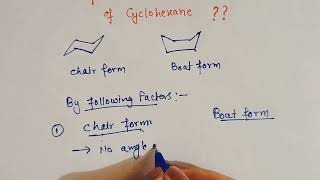 of Cyclohexane ??
chair form Boat form
By following factors:-
① Chair form: Boat form
→ No angle